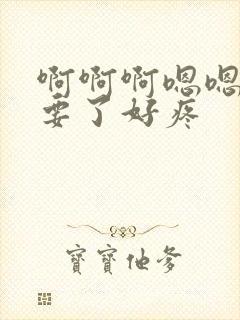 啊啊啊嗯嗯
要了好疼
寶寶他爹